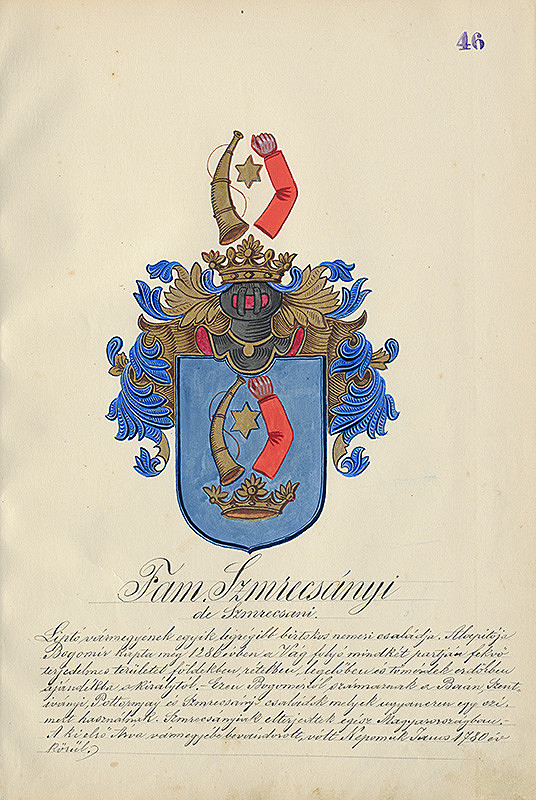 46
Fam. Szmrecsányi
de Szmrecsani.
Liptó vármegyének egyik legrégibb birtokos nemesi családja. Alapitója
Bogomir kapta még 1230 évben a Vág folyó mindkét partján fekvő
terjedelmes területet földekben, rétekben, legelőben és erdőkben
ajándékba a királytól. – Ezen Bogomirtól származnak a Baán, Szent-
iványi, Pottornyay és Szmrecsányi családok melyek ugyanezen egy czí-
mert használnak. Szmrecsanyiak elterjedtek egész Magyarországban. –
A ki első Árva vármegyébe bevándorolt, vólt Népomuk János 1780 év
körül.